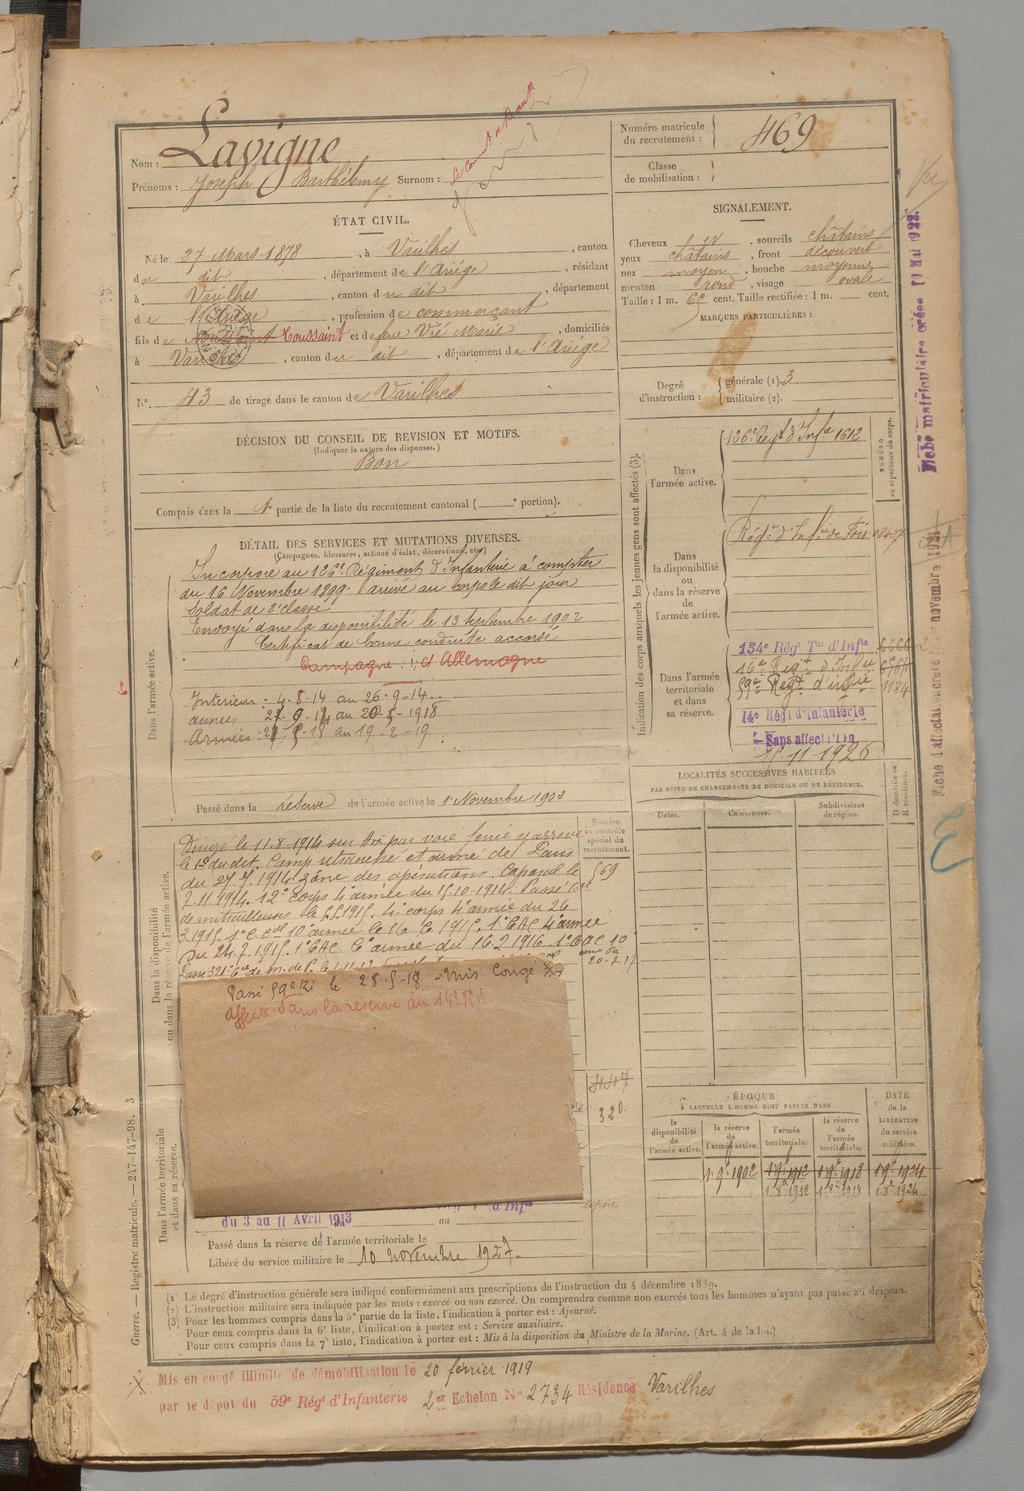 Nom : Lavigne
Prénoms : Joseph Barthélemy Surnom :
Numéro matricule du recrutement : 469
Classe de mobilisation :
ÉTAT CIVIL.
Né le 27 Mars 1878, à Varilhes, canton
du dit, département de l'Ariége, résidant
à Varilhes, canton du dit, département
de l'Ariége, profession de commerçant
fils de Toussaint et de feue Vié Marie, domiciliés
à Varilhes, canton du dit, département de l'Ariége
N° 43 de tirage dans le canton de Varilhes
SIGNALEMENT.
Cheveux et, sourcils châtains
yeux châtains, front découvert
nez moyen, bouche moyenne
menton rond, visage ovale
Taille : 1 m. cent. Taille rectifiée : 1 m. cent.
MARQUES PARTICULIÈRES :
Degré d'instruction : générale (1). 3
militaire (2).
DÉCISION DU CONSEIL DE REVISION ET MOTIFS.
(Indiquer la nature des dispenses.)
Bon
Compris dans la 1e partie de la liste du recrutement cantonal ( e portion).
DÉTAIL DES SERVICES ET MUTATIONS DIVERSES.
(Campagnes, blessures, actions d'éclat, décorations, etc.)
Dans l'armée active.
Incorporé au 126e Régiment d'Infanterie à compter
du 16 Novembre 1899. arrivé au corps le dit jour
Soldat de 2e classe
Envoyé dans la disponibilité le 13 septembre 1902
Certificat de bonne conduite accordé
Campagne : ct Allemagne
Intérieur : 4-8-14 au 26-9-14
armées 27-9-14 au 20-5-1918
Armées : 21-5-18 au 19-2-19
Passé dans la réserve de l'armée active le 1 Novembre 1903
Dans la disponibilité ou dans la réserve de l'armée active.
Dirigé le 11.8.1914 sur par voie ferrée y arrivé
le 12 du dit. Camp retranché et armée de Paris
du 27.9.1914 zône des opérations. Caporal le
7.11.1914. 12e corps 4e armée du 15.10.1914. Passé Cie
de mitrailleuses le 5.5.1915. 4e corps 4e armée du 26
3.1915. 10e armée le 16.6.1915. 1e CAC 4e armée
Du 24.7.1915. 1e CAC 6e armée du 16.2.1916. 1e CAC 10
armée du 20-7-17
Passé 59e RI le 25-5-18 - Mis Congé
affecté dans la réserve du 14e RI
Numéro au contrôle spécial du recrutement.
569
320
Indication des corps auxquels les jeunes gens sont affectés (3).
NUMÉRO au répertoire du corps.
Dans l'armée active.
126e Régt d'Infie 1612
Dans la disponibilité ou dans la réserve de l'armée active.
Régt d'Infie de Foix
Dans l'armée territoriale et dans sa réserve.
134e Régt Tal d'Infie
14e Régt d'Infie
59e Régt d'infie 1184
14e Régt d'Infanterie
Sans affectation
15-11-1926
LOCALITÉS SUCCESSIVES HABITÉES
PAR SUITE DE CHANGEMENTS DE DOMICILE OU DE RÉSIDENCE.
Dates. Communes. Subdivisions de région. D domicile ou R résidence.
ÉPOQUE
À LAQUELLE L'HOMME DOIT PASSER DANS
la disponibilité de l'armée active. la réserve de l'armée active. l'armée territoriale. la réserve de l'armée territoriale. DATE de la LIBÉRATION du service militaire.
1-9e 1902 1-9e 1912 1-9e 1918 1-9e 1924
1-8e 1912 1-8e 1918 1-8e 1924
Dans l'armée territoriale et dans sa réserve.
du 3 au 11 Avril 1913 au
Passé dans la réserve de l'armée territoriale le
Libéré du service militaire le 10 novembre 1927
(1) Le degré d'instruction générale sera indiqué conformément aux prescriptions de l'instruction du 4 décembre 1889.
(2) L'instruction militaire sera indiquée par les mots : exercé ou non exercé. On comprendra comme non exercés tous les hommes n'ayant pas passé au drapeau.
(3) Pour les hommes compris dans la 5e partie de la liste, l'indication à porter est : Ajourné.
Pour ceux compris dans la 6e liste, l'indication à porter est : Service auxiliaire.
Pour ceux compris dans la 7e liste, l'indication à porter est : Mis à la disposition du Ministre de la Marine. (Art. 4 de la loi.)
Mis en congé illimité de démobilisation le 20 février 1919
par le dépôt du 59e Régt d'Infanterie 2e Echelon No 2734 Résidence Varilhes
Guerre. — Registre matricule. — 247-147-98. 3
Fiche matriculaire créée 10 Mai 1922.
Fiche d'affectation créée novembre 1921